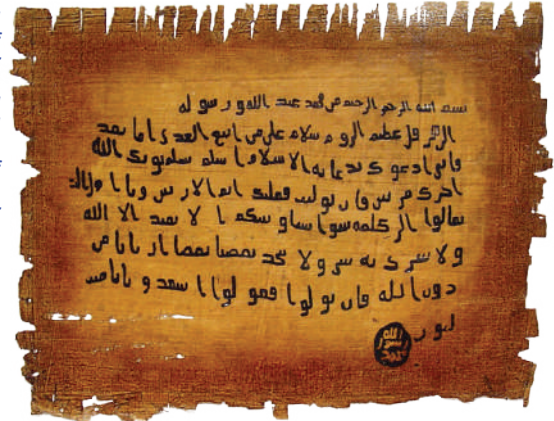 بسم الله الرحمن الرحيم من محمد عبد الله ورسوله
الى هرقل عظيم الروم سلام على من اتبع الهدى اما بعد
فاني ادعوك بدعاية الاسلام اسلم تسلم يوتك الله
اجرك مرتين فان توليت فعليك اثم الاريسين ويا
تعالوا الى كلمة سوا الا نعبد الا الله
ولا نشرك به ولا يتخذ بعضنا بعضا اربابا من
دون الله فان تولوا فقولوا اشهدوا بانا مس
لمون
الله
رسول
محمد